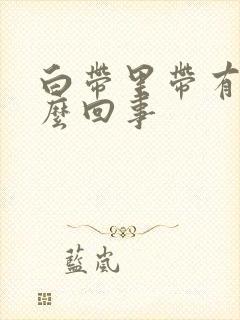 白帶里帶有
麼回事
藍嵐